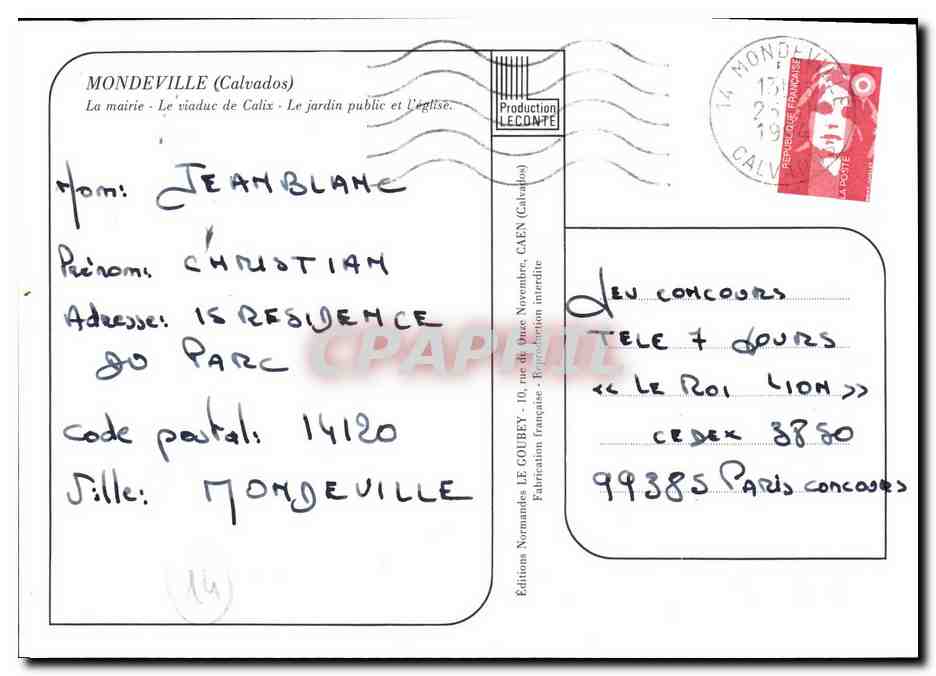 MONDEVILLE (Calvados)
La mairie - Le viaduc de Calix - Le jardin public et l'église.
Production
LECONTE
14 MONDEVILLE
CALVADOS
RÉPUBLIQUE FRANÇAISE
LA POSTE
Nom: JEANBLANC
Prénom: CHRISTIAN
Adresse: 15 RESIDENCE
DU PARC
code postal: 14120
Ville: MONDEVILLE
14
Éditions Normandes LE GOUBEY - 10, rue du Onze Novembre, CAEN (Calvados)
Fabrication française - Reproduction interdite
JEU CONCOURS
TELE 7 JOURS
« LE ROI LION »
CEDEX 3850
99385 PARIS CONCOURS
CPAPHIL